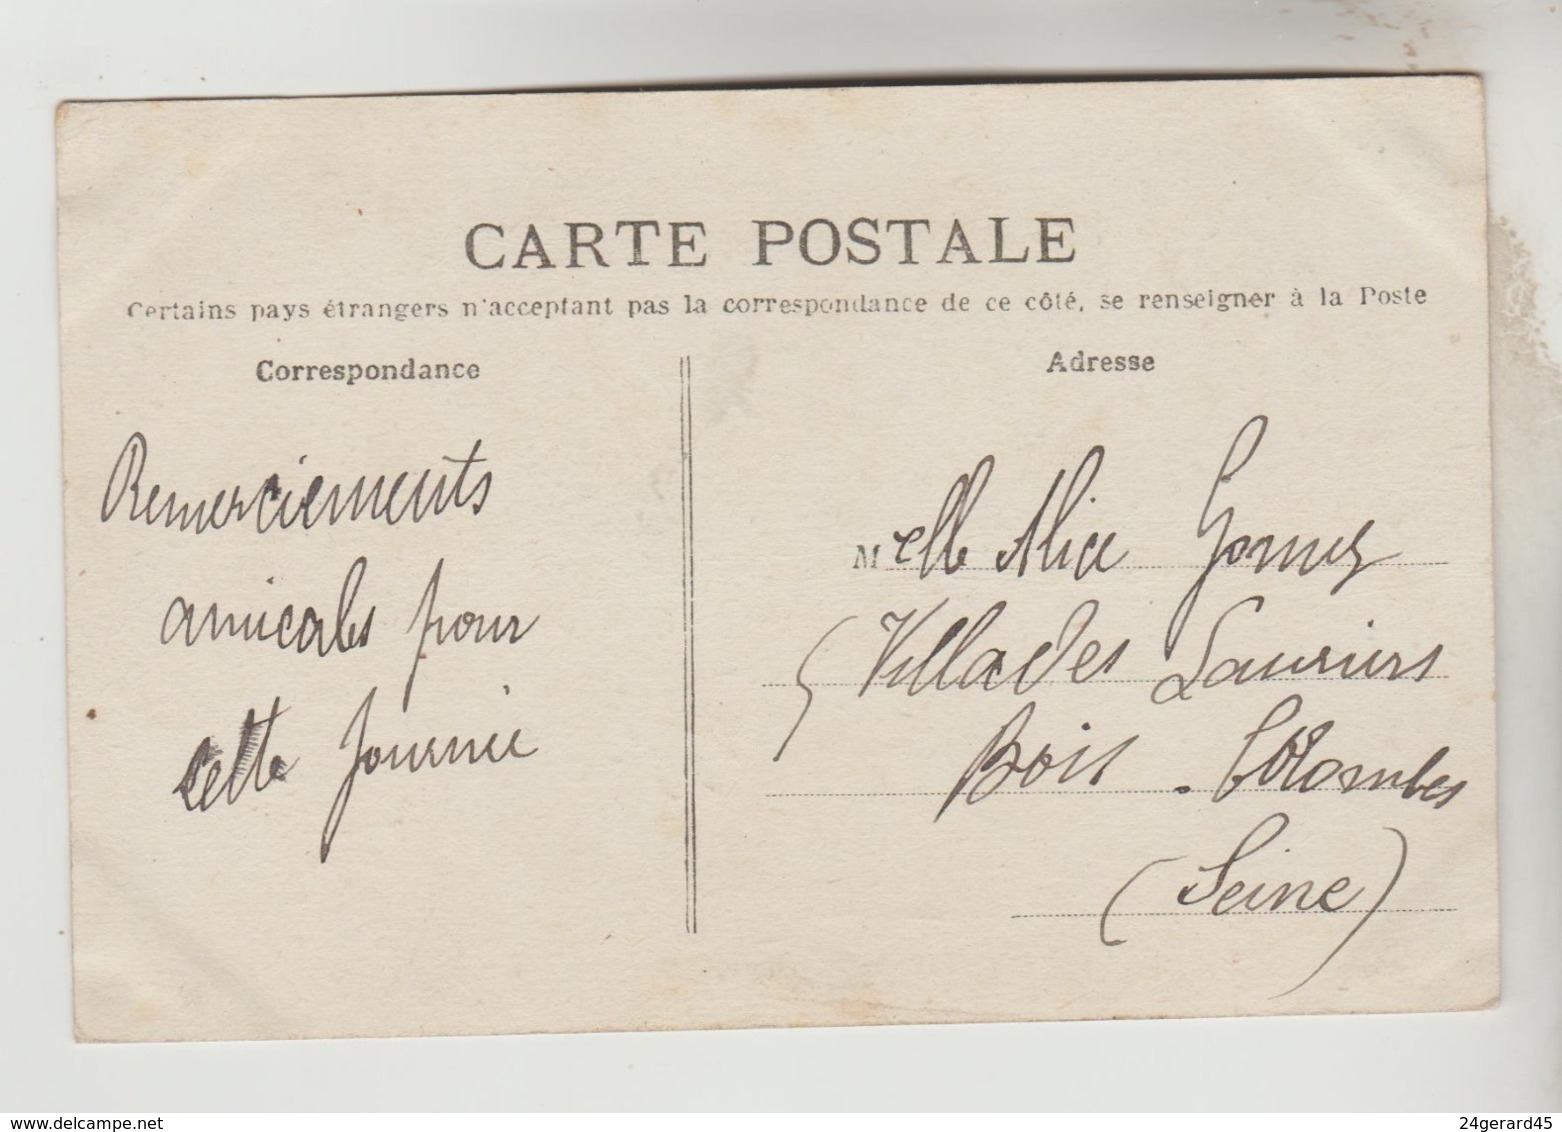 CARTE POSTALE
Certains pays étrangers n'acceptant pas la correspondance de ce côté, se renseigner à la Poste
Correspondance
Remerciements
amicales pour
cette Journée
Adresse
Melle Alice Gomez
Villa des Lauriers
Bois-Colombes
(Seine)
24gerard45